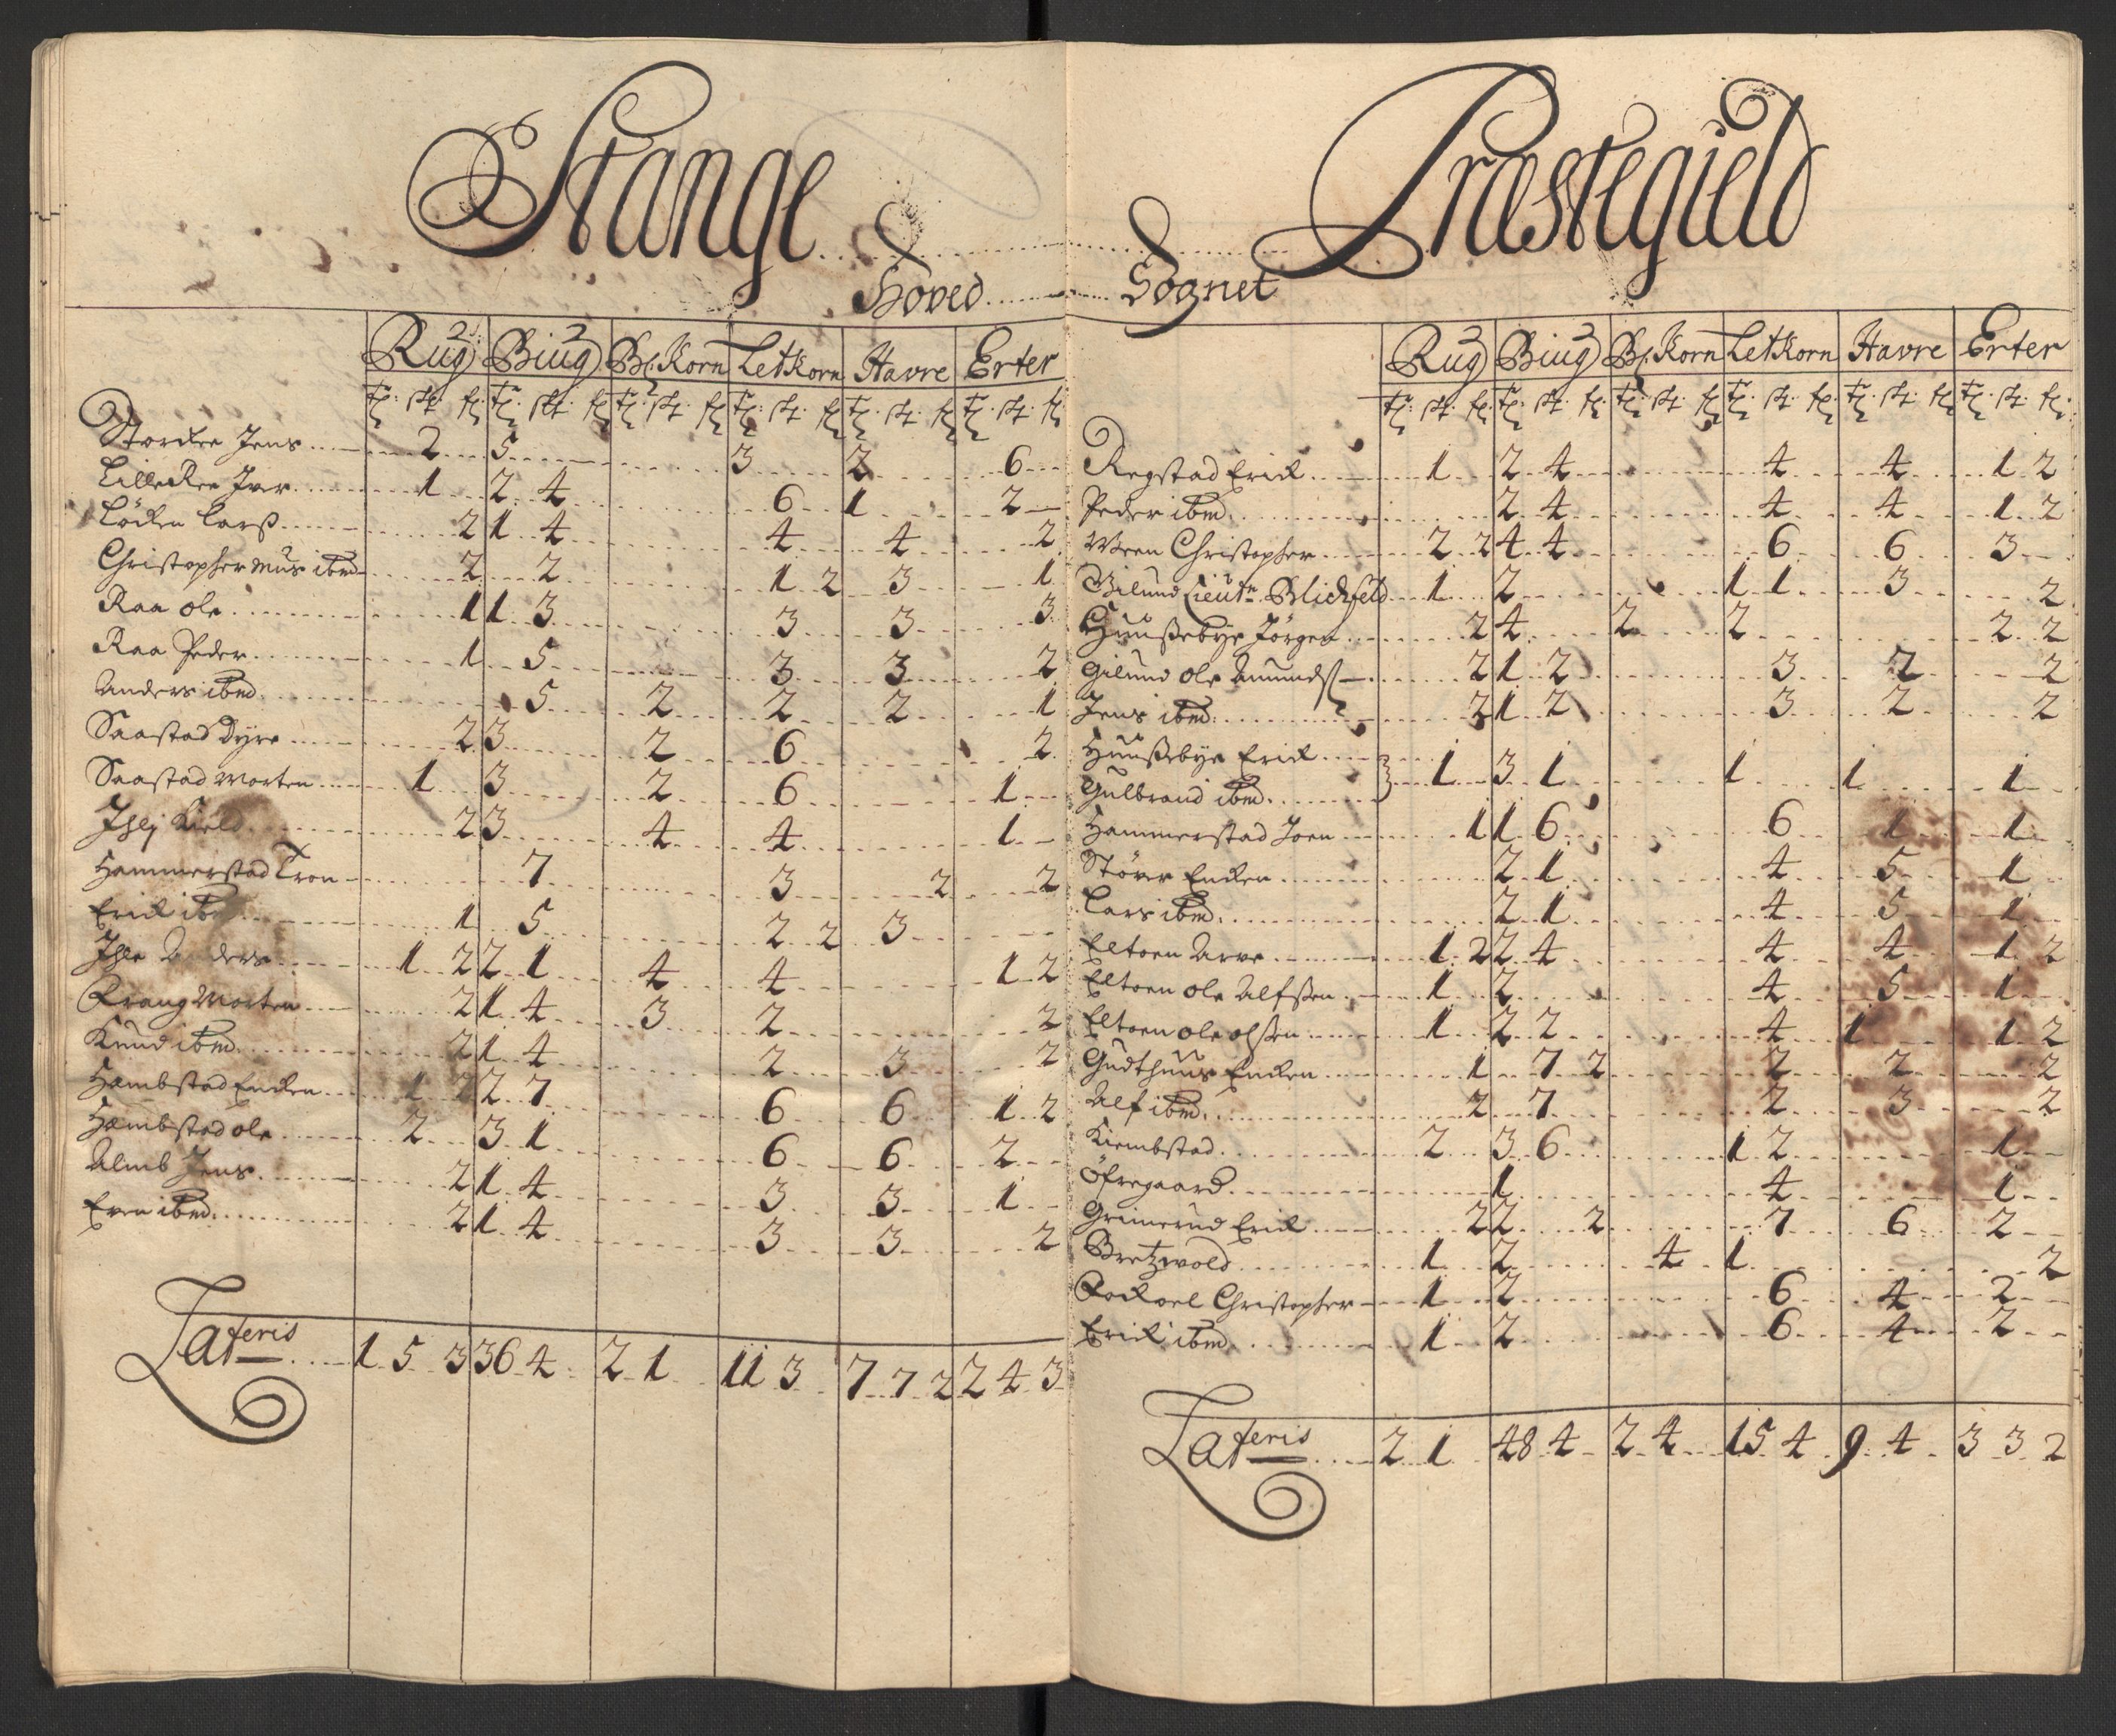 Stange
Hoved
Rug Biug Bl. Korn Letkorn Havre Erter
Jens 2 5 3 2 6
Lille Ree Iver 1 2 4 6 1 2
Löcken Larß 2 1 4 4 4 2
Christopher Mus ibm 2 2 1 2 3 1
Raa Ole 1 1 3 3 3 3
Raa Peder 1 5 3 3 2
Anders ibm 5 2 2 2 1
Saastad Dyre 2 3 2 6 2
Saastad Morten 1 3 2 6 1
Ihlj Kield 2 3 4 4 1
Hammerstad Tron 7 3 2 2
Erick ibm 1 5 2 2 3
Ihle Anders 1 2 2 1 4 4 1 2
Morten 2 1 4 3 2 2
Knud ibm 2 1 4 2 3 2
Hæmbstad Encken 1 2 2 7 6 6 1 2
Hæmbstad Ole 2 3 1 6 6 2
Almb Jens 2 1 4 3 3 1
Even ibm 2 1 4 3 3 2
Lateris 1 5 3 36 4 2 1 11 3 7 7 2 2 4 3
Præstegield
Sognet
Rug Biug Bl. Korn Letkorn Havre Erter
Regstad Erick 1 2 4 4 4 1 2
Peder ibm 2 4 4 4 1 2
Ween Christopher 2 2 4 4 6 6 3
Vilund Lieutn Blickfeld 1 2 1 1 3 2
Huußebye Jörgen 2 4 2 2 2 2
Gilund Ole Amunds 2 1 2 3 2 2
Jens ibm 2 1 2 3 2 2
Huußebye Erick 1 3 1 1 1 1
Gulbrand ibm
Hammerstad Joen 1 1 6 6 1 1
Större Encken 2 1 4 5 1
Lars ibm 2 1 4 5 1
Eltoen Arve 1 2 2 4 4 4 1 2
Eltoen Ole Alfßen 1 2 4 5 1
Eltoen Ole Olßen 1 2 2 4 1 1 2
Gudthuus Encken 1 7 2 2 2 2
Alf ibm 2 7 2 3 2
Kiembstad 2 3 6 1 2 1
Öfregaard 1 4 1
Grimerud Erick 2 2 2 7 6 2
Bretzvold 1 2 4 1 2
Christopher 1 2 6 4 2
Erick ibm 1 2 6 4 2
Lateris 2 1 48 4 2 4 15 4 9 4 3 3 2